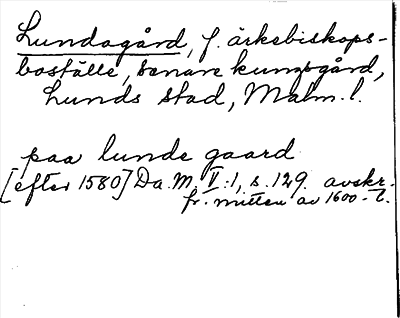 Lundagård, f. ärkebiskops-
boställe, senare kungsgård,
Lunds stad, Malm. l.
paa lunde gaard
[efter 1580] Da. M. V:1, s. 129. avskr.
fr. mitten av 1600-t.